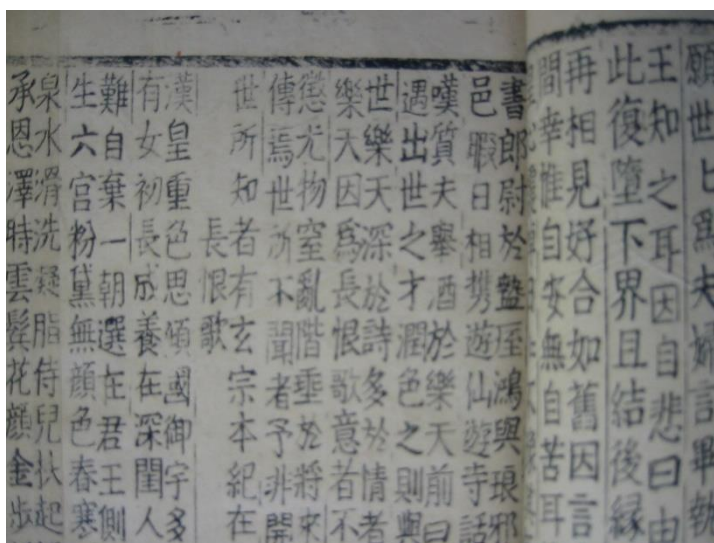 願世匕爲夫婦言畢執
王知之耳因自悲曰由
此復墮下界且結後縁
再相見好合如舊因言
間幸惟自安無自苦耳
書郎尉於盩厔鴻與琅邪
邑暇日相携遊仙遊寺話
嘆質夫舉酒於樂天前曰
遇出世之才潤色之則與
世樂天深於詩多於情者
樂天因爲長恨歌意者不
懲尤物窒亂階垂於將來
傳焉世所不聞者予非開
世所知者有玄宗本紀在
長恨歌
漢皇重色思傾國御宇多
有女初長成養在深閨人
難自棄一朝選在君王側
生六宫粉黛無顔色春寒
泉水滑洗凝脂侍兒扶起
承恩澤時雲鬂花顔金步